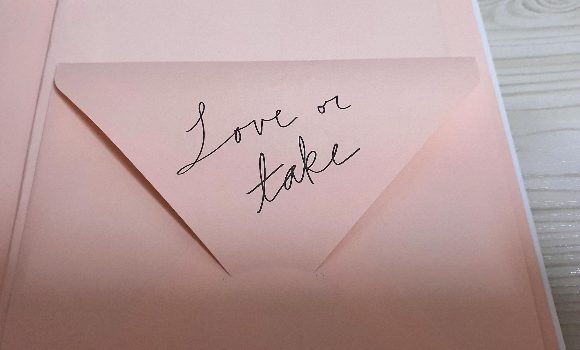 Love or
take